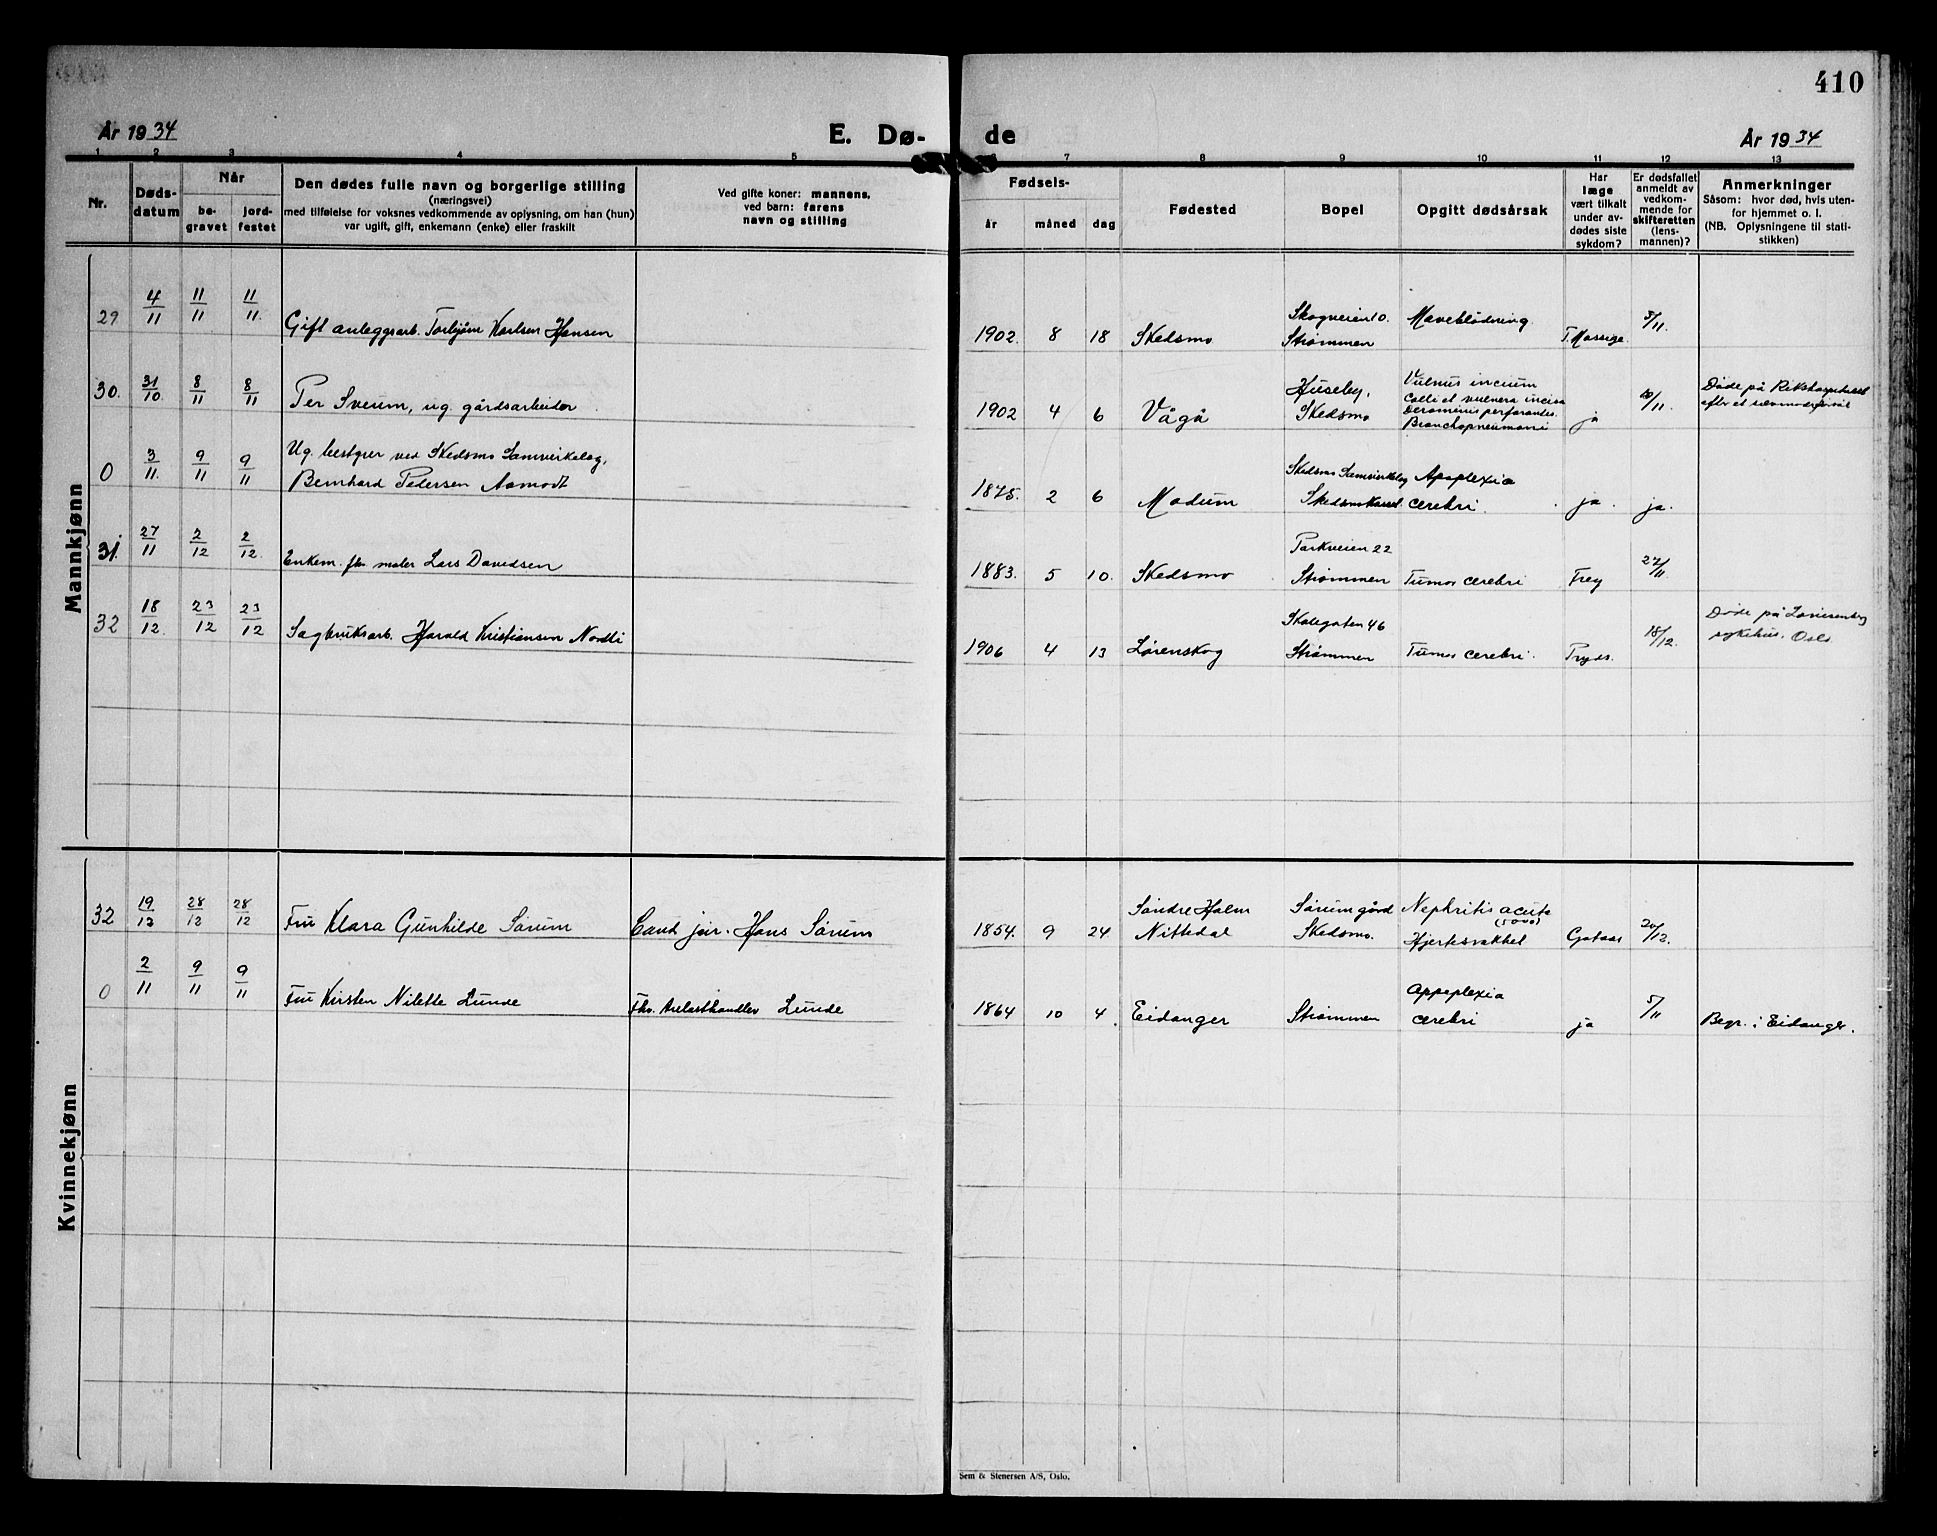 410
År 1934
E. Dø-
de
År 1934
1 2 3 4 5
6 7 8 9 10 11 12 13
Nr.
Døds-
datum
Når
be-
gravet
jord-
festet
Den dødes fulle navn og borgerlige stilling
(næringsvei)
med tilføielse for voksnes vedkommende av oplysning, om han (hun)
var ugift, gift, enkemann (enke) eller fraskilt
Ved gifte koner: mannens,
ved barn: farens
navn og stilling
Fødsels-
år
måned
dag
Fødested
Bopel
Opgitt dødsårsak
Har
læge
vært tilkalt
under av-
dødes siste
sykdom?
Er dødsfallet
anmeldt av
vedkom-
mende for
skifteretten
(lens-
mannen)?
Anmerkninger
Såsom: hvor død, hvis uten-
for hjemmet o. l.
(NB. Oplysningene til stati-
stikken)
Mannkjønn
29 4/11 11/11 11/11. Gift anleggsarb. Torbjørn Karlsen Hansen
1902. 8 18 Skedsmo
Skogveien 10.
Strømmen
Maveblødning.
3/11.
30. 31/10 8/11 8/11 Per Sveum, ug. gårdsarbeider.
1902 4 6 Vågå
Huseby,
Skedsmo
Vulnus incisum
Colli et vulnera incisa
perforantes.
Bronchopneumoni
ja
Døde på Rikshospitalet
0 3/11. 9/11 9/11 Ug. bestyrer ved Skedsmo Samvirkelag,
Bernhard Pedersen Aamodt
1875. 2 6 Modum
Skedsmo Samvirkelag
Apoplexia
cerebri.
ja. ja.
31. 27/11 2/12 2/12. Enkem. fhv. maler Lars Davidsen
1883. 5 10. Skedsmo
Parkveien 22
Strømmen
Tumor cerebri
Frey
27/11.
32 18/12. 23/12 23/12 Sagbruksarb. Harald Kristiansen Nordli
1906 4 13 Lørenskog
Skolegaten 46
Strømmen
Tumor cerebri.
Pryds.
18/12.
Døde på Lovisenberg
sykehus. Oslo
Kvinnekjønn
32 19/12 28/12 28/12 Fru Klara Gunhilde Sørum
Cand jur. Hans Sørum
1854. 9 24.
Søndre Holm
Nittedal
Sørum gård
Skedsmo.
Nephritis acuta
Hjertesvakhet
20/12.
0 2/11 9/11 9/11 Fru Kirsten Nilette Lunde
Fhv. trelasthandler Lunde
1864 10 4. Eidanger
Strømmen
Appoplexia
cerebri
ja
5/11
Begr. i Eidanger.
Sem & Stenersen A/S, Oslo.